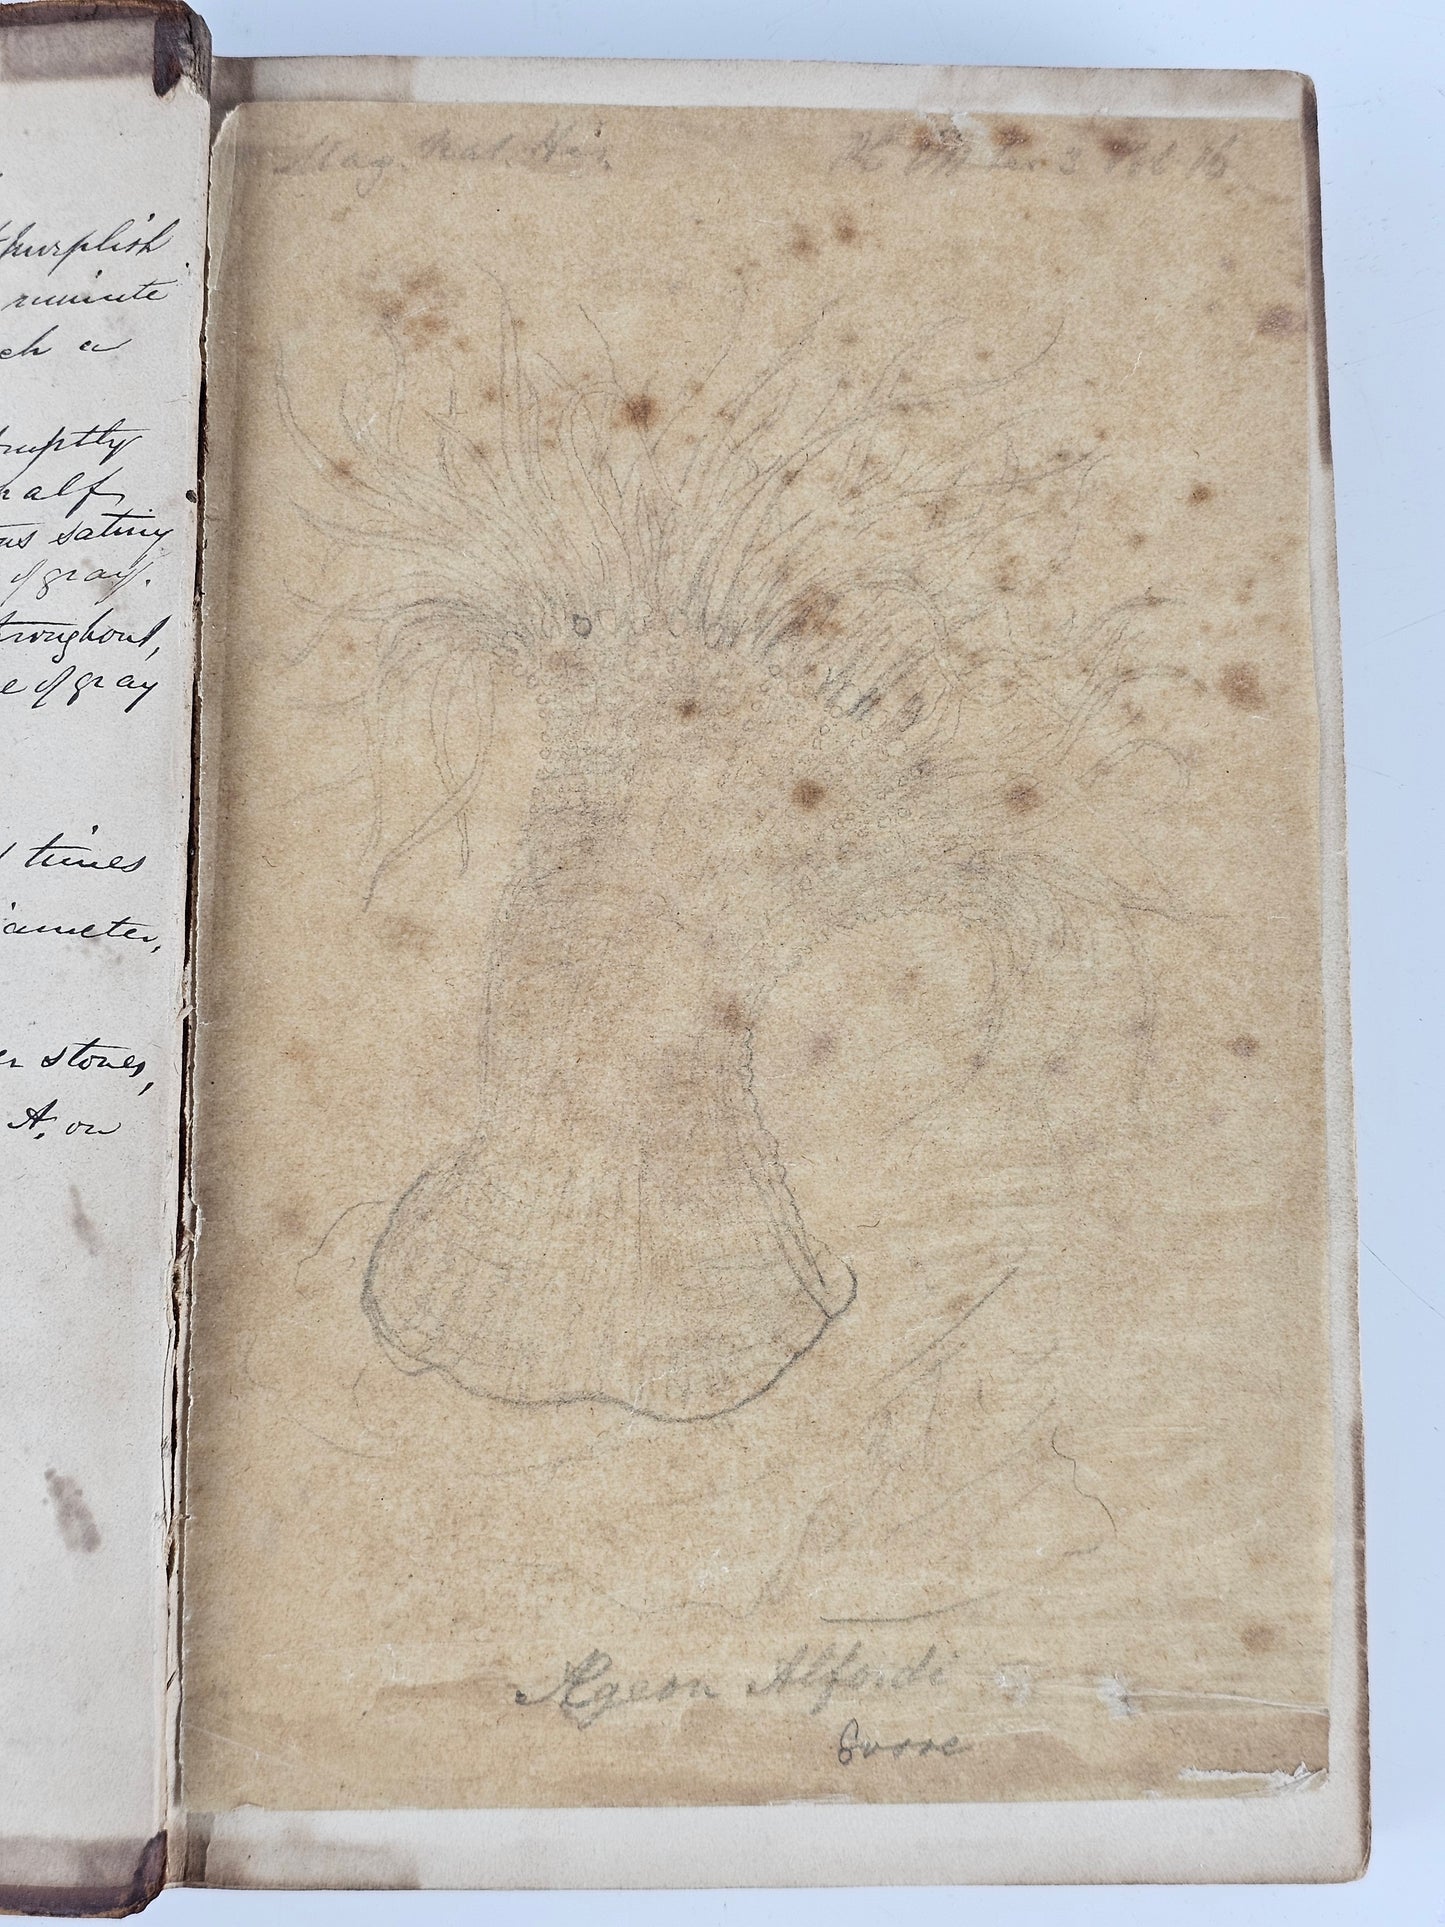 purplish
minute
ch a
ruptly
half,
us satiny
of gray.
throughout,
e of gray
times
iameter,
stones,
A. on
Mag. Nat. His.
3 Vol 16
Ægeon Alfordi
Gosse